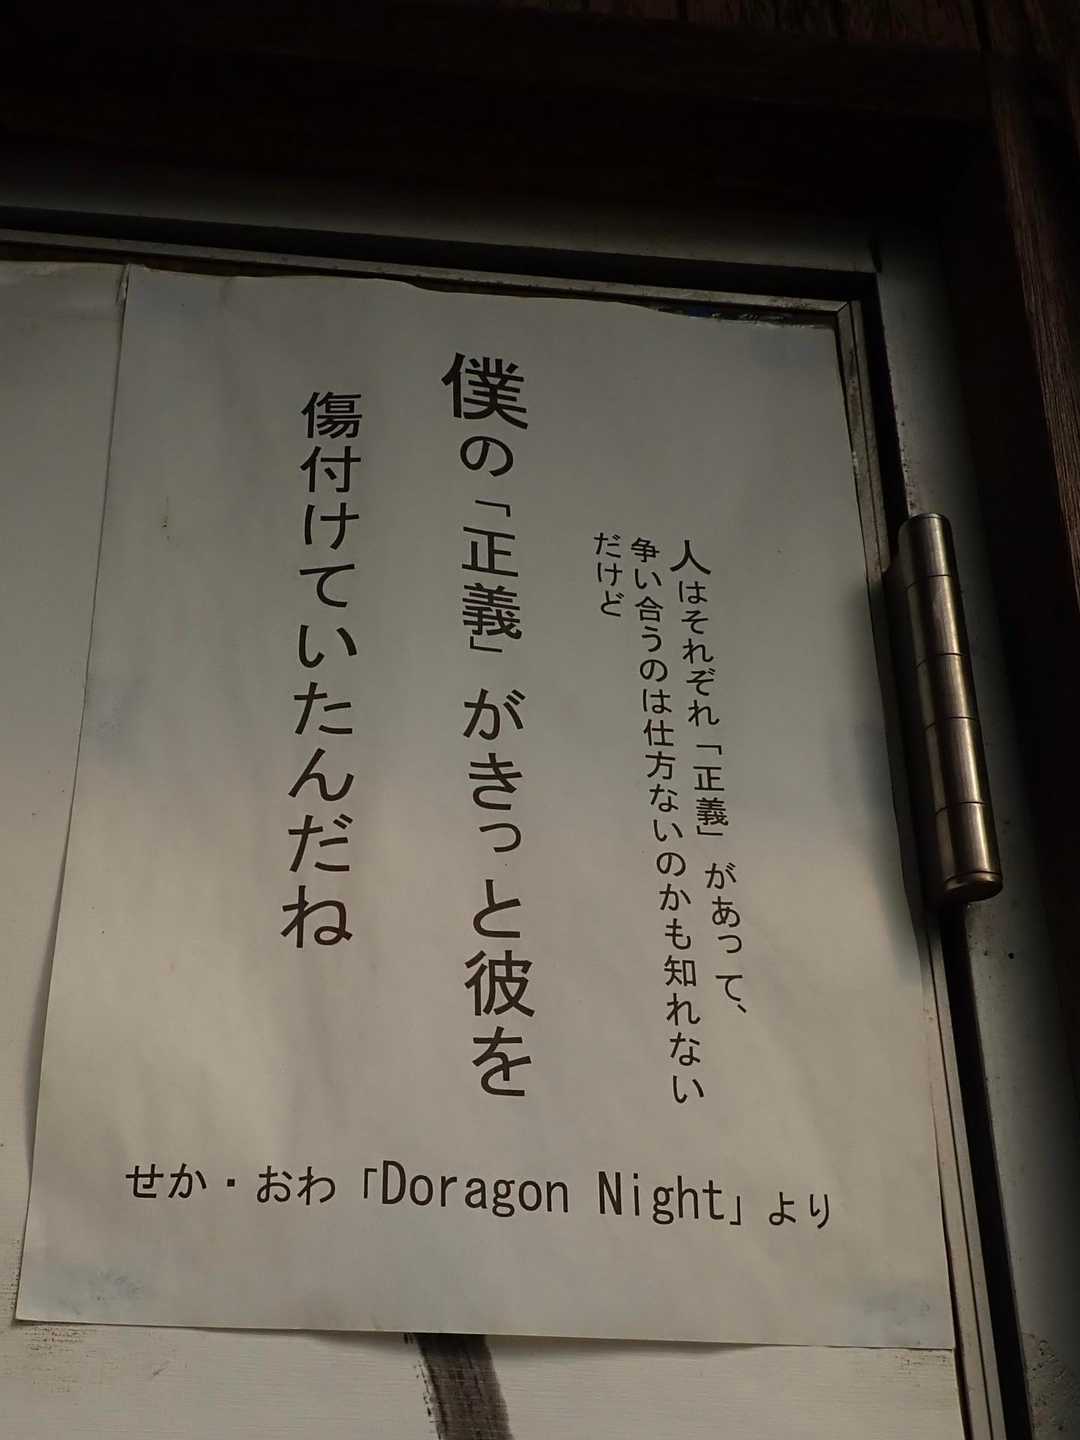 人はそれぞれ「正義」があって、
争い合うのは仕方ないのかも知れない
だけど
僕の「正義」がきっと彼を
傷付けていたんだね
せか・おわ「Doragon Night」より